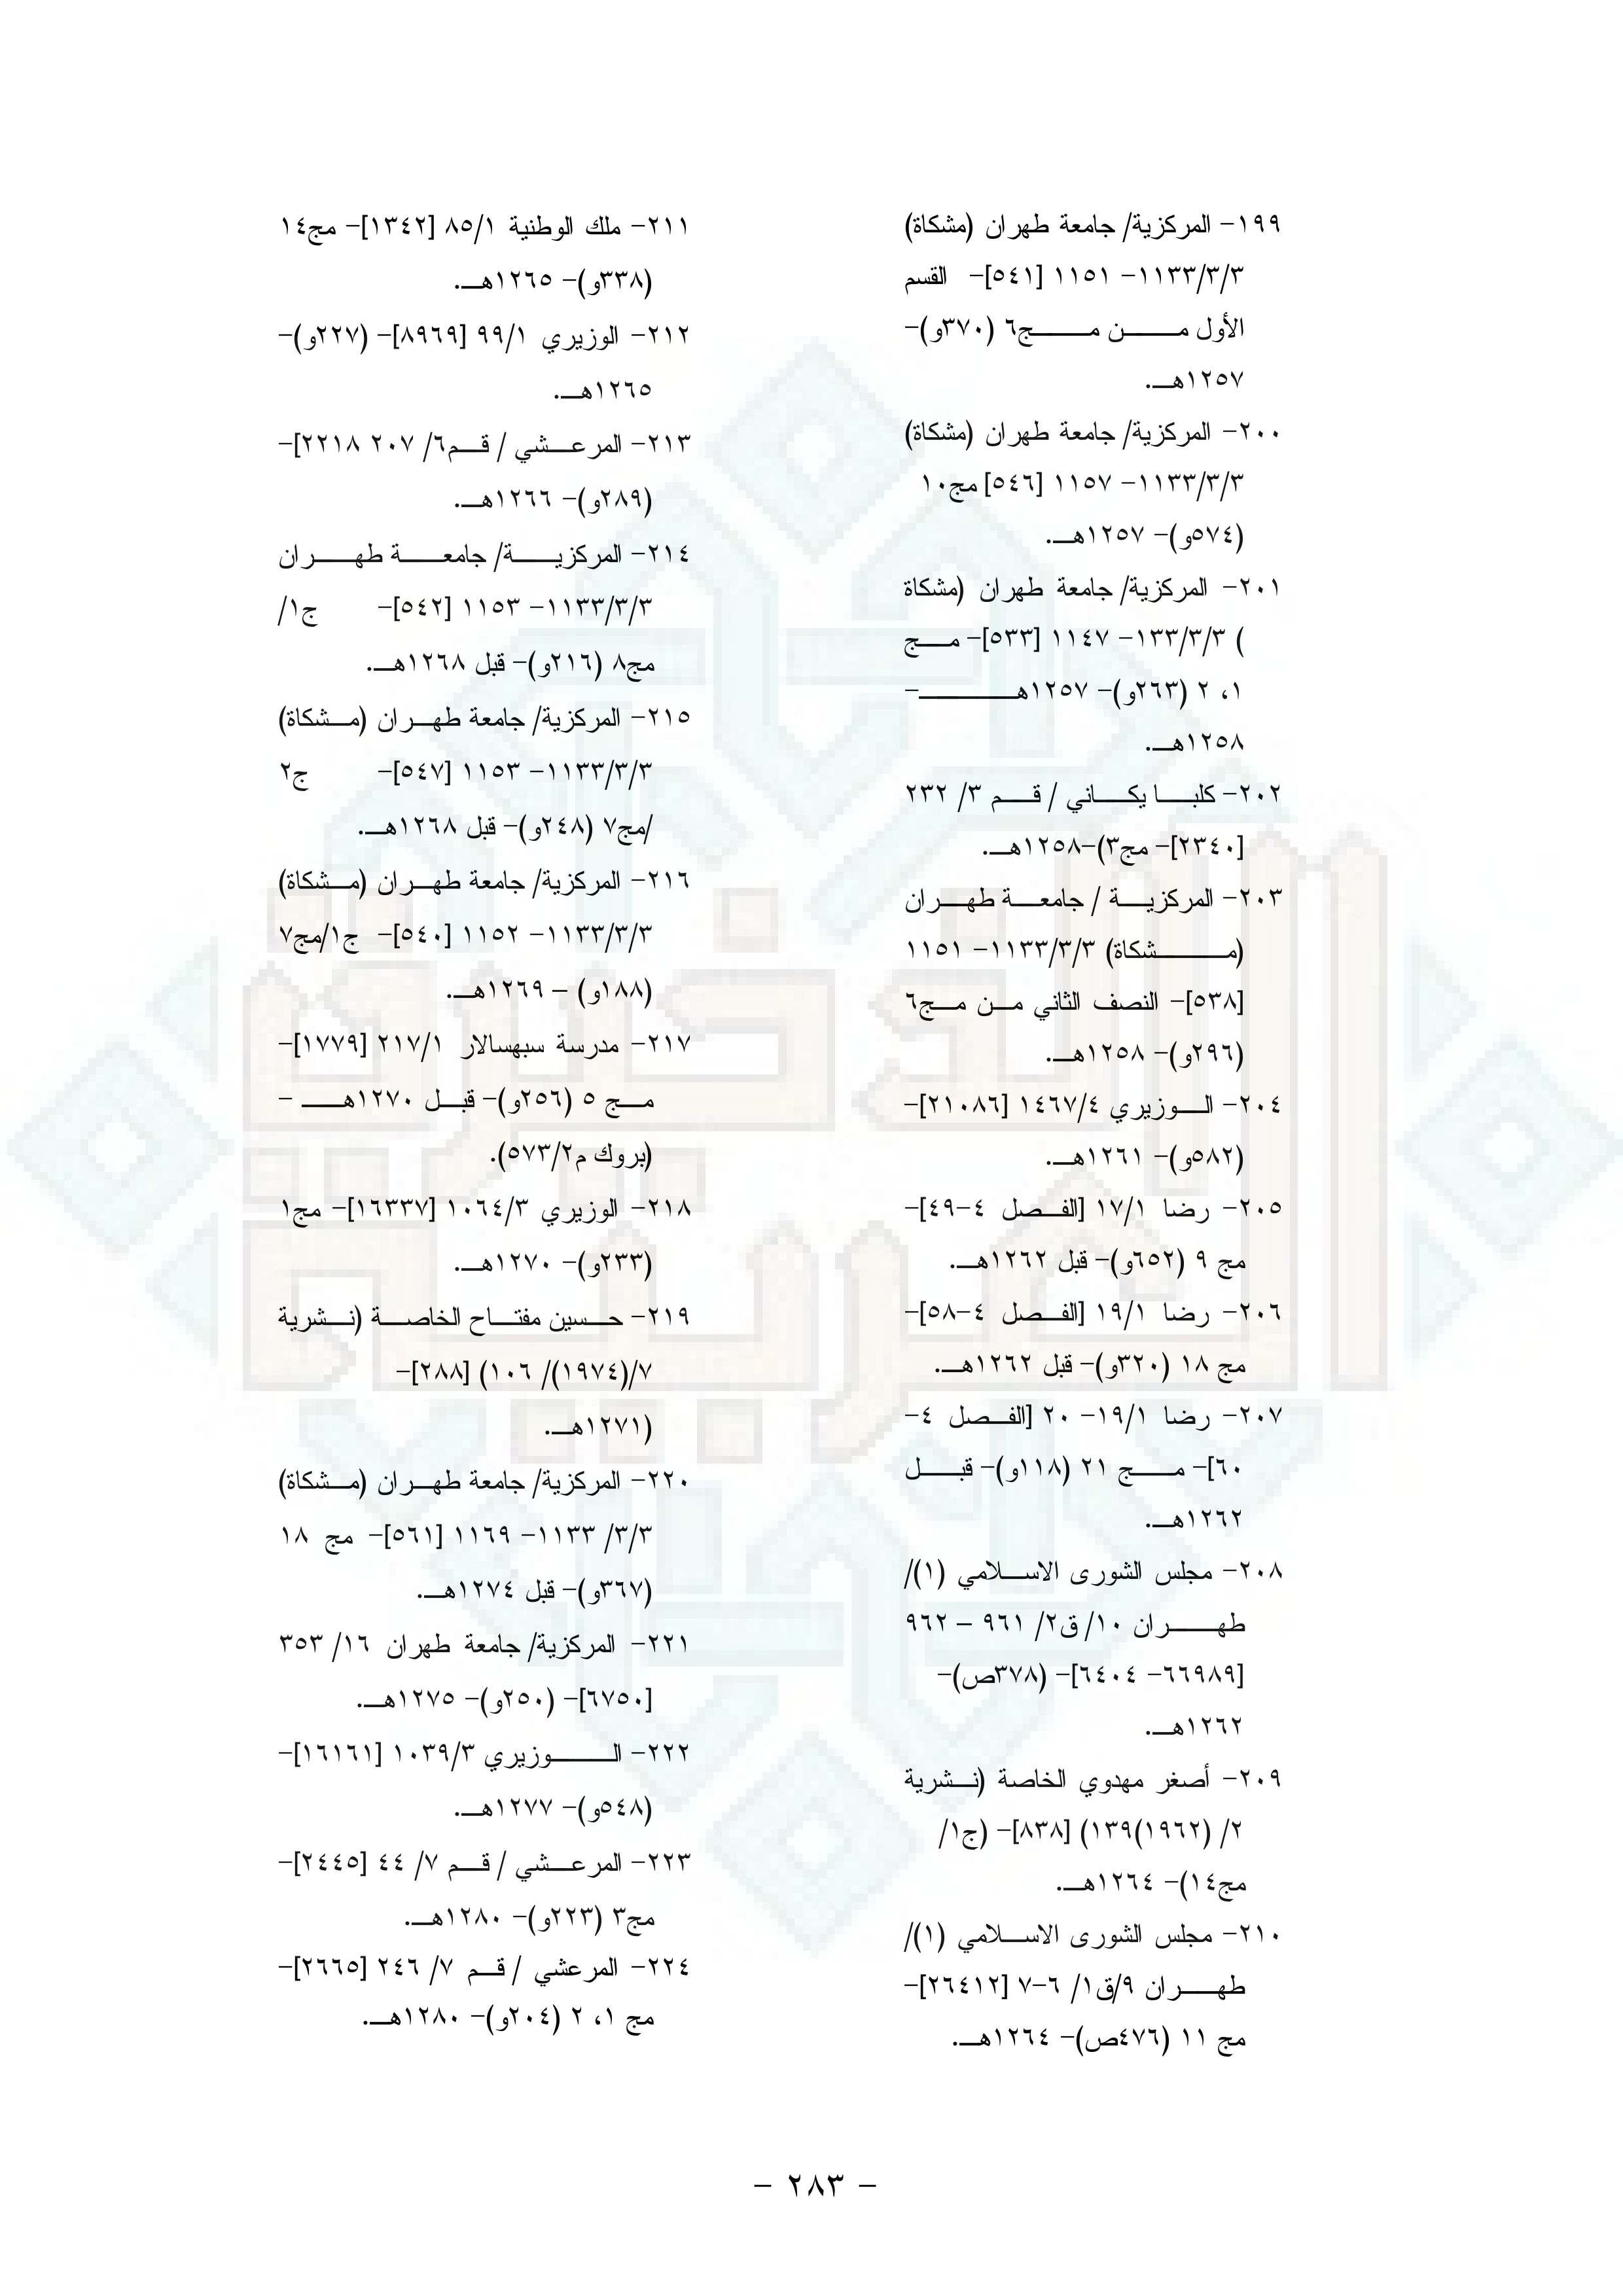 ١٩٩- المركزية/ جامعة طهران (مشكاة)
١١٣٣/٣/٣- ١١٥١ [٥٤١]- القسم
الأول من مج٦ (٣٧٠و)-
١٢٥٧هـ.
٢٠٠- المركزية/ جامعة طهران (مشكاة)
١١٣٣/٣/٣- ١١٥٧ [٥٤٦] مج١٠
(٥٧٤و)- ١٢٥٧هـ.
٢٠١- المركزية/ جامعة طهران (مشكاة
) ١٣٣/٣/٣- ١١٤٧ [٥٣٣]- مج
١، ٢ (٢٦٣و)- ١٢٥٧هـ-
١٢٥٨هـ.
٢٠٢- كلبا يكاني / قم ٣/ ٢٣٢
[٢٣٤٠]- مج٣)-١٢٥٨هـ.
٢٠٣- المركزية / جامعة طهران
(مشكاة) ١١٣٣/٣/٣- ١١٥١
[٥٣٨]- النصف الثاني من مج٦
(٢٩٦و)- ١٢٥٨هـ.
٢٠٤- الوزيري ١٤٦٧/٤ [٢١٠٨٦]-
(٥٨٢و)- ١٢٦١هـ.
٢٠٥- رضا ١٧/١ [الفصل ٤-٤٩]-
مج ٩ (٦٥٢و)- قبل ١٢٦٢هـ.
٢٠٦- رضا ١٩/١ [الفصل ٤-٥٨]-
مج ١٨ (٣٢٠و)- قبل ١٢٦٢هـ.
٢٠٧- رضا ١٩/١- ٢٠ [الفصل ٤-
٦٠]- مج ٢١ (١١٨و)- قبل
١٢٦٢هـ.
٢٠٨- مجلس الشورى الاسلامي (١)/
طهران ١٠/ ق٢/ ٩٦١ – ٩٦٢
[٦٦٩٨٩- ٦٤٠٤]- (٣٧٨ص)-
١٢٦٢هـ.
٢٠٩- أصغر مهدوي الخاصة (نشرية
٢/ (١٩٦٢)١٣٩) [٨٣٨]- (ج١/
مج١٤)- ١٢٦٤هـ.
٢١٠- مجلس الشورى الاسلامي (١)/
طهران ٩/ق١/ ٦-٧ [٢٦٤١٢]-
مج ١١ (٤٧٦ص)- ١٢٦٤هـ.
٢١١- ملك الوطنية ٨٥/١ [١٣٤٢]- مج١٤
(٣٣٨و)- ١٢٦٥هـ.
٢١٢- الوزيري ٩٩/١ [٨٩٦٩]- (٢٢٧و)-
١٢٦٥هـ.
٢١٣- المرعشي / قم٦/ ٢٠٧ ٢٢١٨]-
(٢٨٩و)- ١٢٦٦هـ.
٢١٤- المركزية/ جامعة طهران
١١٣٣/٣/٣- ١١٥٣ [٥٤٢]- ج١/
مج٨ (٢١٦و)- قبل ١٢٦٨هـ.
٢١٥- المركزية/ جامعة طهران (مشكاة)
١١٣٣/٣/٣- ١١٥٣ [٥٤٧]- ج٢
/مج٧ (٢٤٨و)- قبل ١٢٦٨هـ.
٢١٦- المركزية/ جامعة طهران (مشكاة)
١١٣٣/٣/٣- ١١٥٢ [٥٤٠]- ج١/مج٧
(١٨٨و) – ١٢٦٩هـ.
٢١٧- مدرسة سبهسالار ٢١٧/١ [١٧٧٩]-
مج ٥ (٢٥٦و)- قبل ١٢٧٠هـ -
(بروك م٥٧٣/٢).
٢١٨- الوزيري ١٠٦٤/٣ [١٦٣٣٧]- مج١
(٢٣٣و)- ١٢٧٠هـ.
٢١٩- حسين مفتاح الخاصة (نشرية
٧/(١٩٧٤)/ ١٠٦) [٢٨٨]-
(١٢٧١هـ.
٢٢٠- المركزية/ جامعة طهران (مشكاة)
٣/٣/ ١١٣٣- ١١٦٩ [٥٦١]- مج ١٨
(٣٦٧و)- قبل ١٢٧٤هـ.
٢٢١- المركزية/ جامعة طهران ١٦/ ٣٥٣
[٦٧٥٠]- (٢٥٠و)- ١٢٧٥هـ.
٢٢٢- الوزيري ١٠٣٩/٣ [١٦١٦١]-
(٥٤٨و)- ١٢٧٧هـ.
٢٢٣- المرعشي / قم ٧/ ٤٤ [٢٤٤٥]-
مج٣ (٢٢٣و)- ١٢٨٠هـ.
٢٢٤- المرعشي / قم ٧/ ٢٤٦ [٢٦٦٥]-
مج ١، ٢ (٢٠٤و)- ١٢٨٠هـ.
- ٢٨٣ -